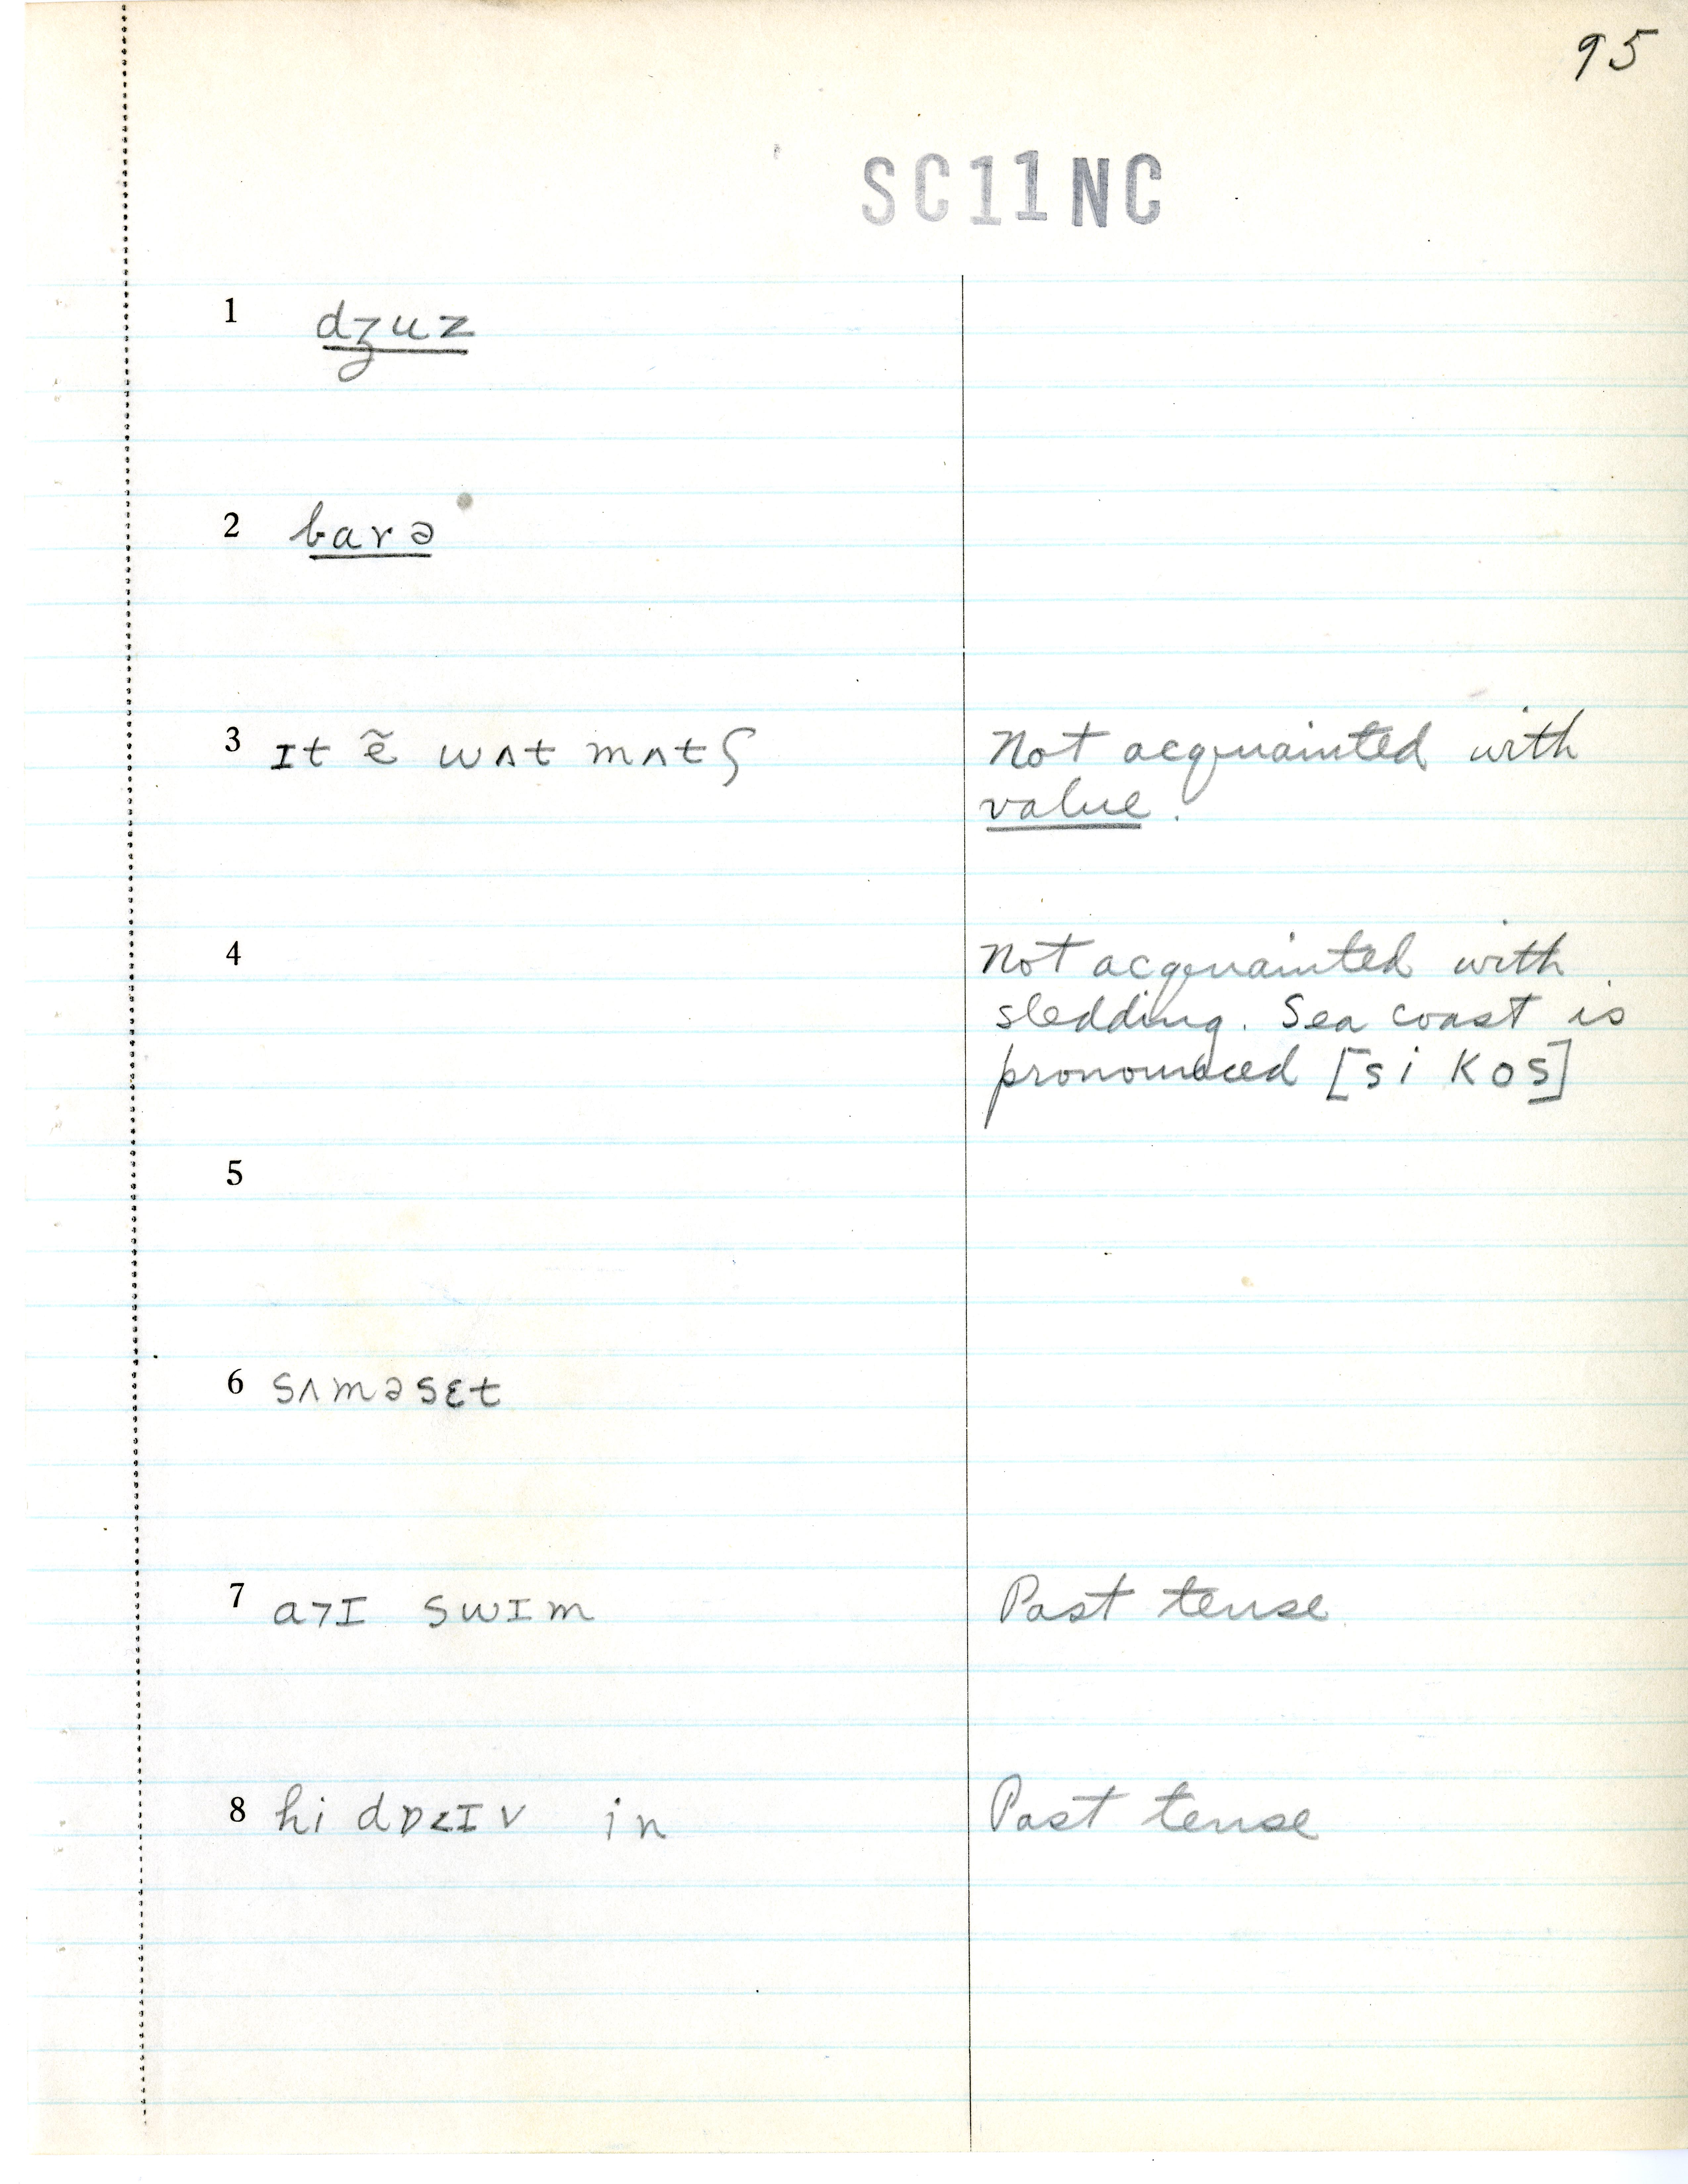 95
SC11NC
1 dʒuz
2 barə
3 ɪt ẽ wʌt mʌtʃ Not acquainted with
value.
4 Not acquainted with
sledding. Sea coast is
pronounced [si kos]
5
6 sʌməsɛt
7 a˃ɪ swɪm Past tense
8 hi dɒ˂ɪv in Past tense